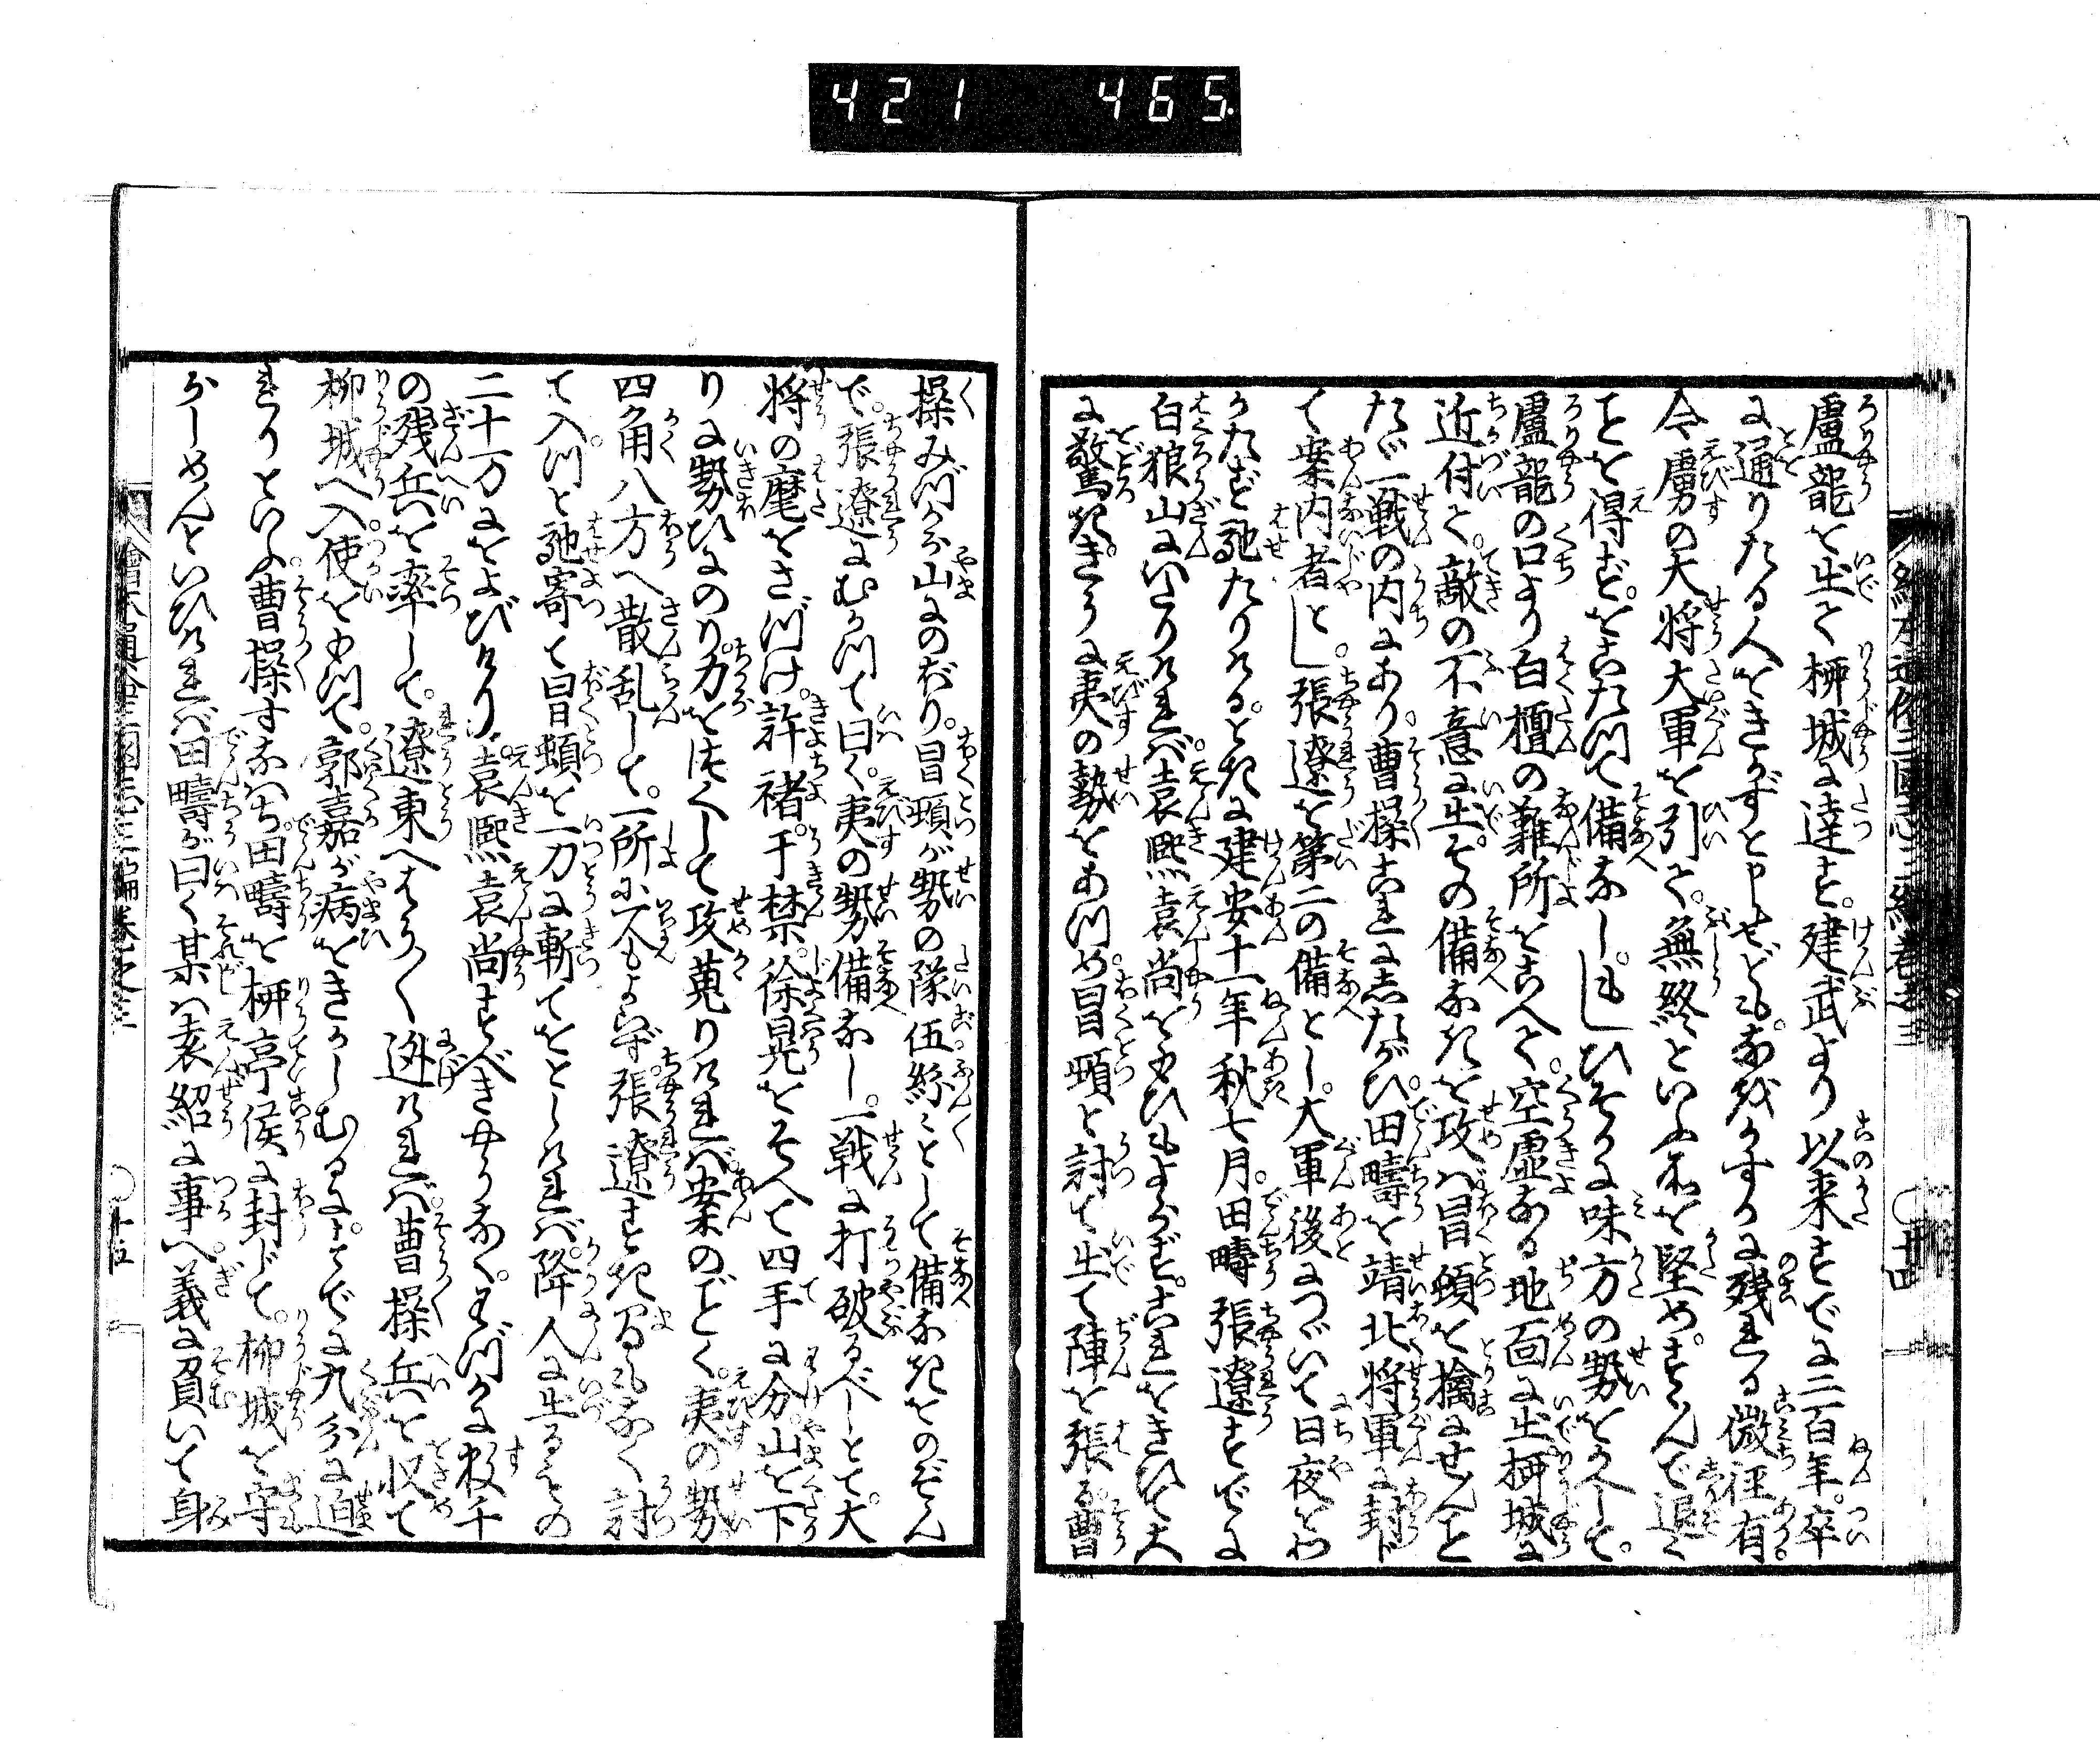 421 465
繪本通俗三國志三編卷之三 ○十四
盧龍を出て柳城に達す。建武より以来すでに二百年。卒
に通りたる人をきかずと申せども。なほかすかに残れる微徑有。
今虜の大将大軍を引て。無終といふ所を堅めすゝんで退く
ことを得ず。をこたつて備なし。もしひそかに味方の勢をかへして。
盧龍の口より白檀の難所をこへて。空虚なる地面に出柳城に
近付て。敵の不意に出。その備なきを攻ば冒頓を擒にせんこと
たゞ一戦の内にあり。曹操これにしたがひ。田疇を靖北将軍に封じ
て案内者とし。張遼を第二の備とし。大軍後につゞいて日夜をわ
かたず馳たりける。ときに建安十一年秋七月。田疇張遼すでに
白狼山にいたりければ。袁熙袁尚をおひもよらず。これをきひて大
に驚き。きうに夷の勢をあつめ。冒頓と討て出て陣を張る。曹
操みづから山にのぼり。冒頓が勢の隊伍紛〻として備なきをのぞん
で。張遼にむかつて曰く。夷の勢備なし。一戦に打破るべしとて。大
将の麾をさづけ。許褚。于禁。徐晃をそへて四手に分。山を下
りに勢ひにのり。力をつくして攻蒐りければ。案のごとく。夷の勢
四角八方へ散乱して。一所にスもよらず。張遼すきまもなく討
て入。つと馳寄て冒頓を一刀に斬てをとしければ。降人に出るもの
二十万にをよびけり。袁熙袁尚すべきやうなく。わづかに数千
の残兵を率して。遼東へはる〴〵迯ければ。曹操兵を収て
柳城へ入。使をやつて。郭嘉が病をきかしむるに。すでに九分に迫
れりといふ。曹操すなはち。田疇を柳亭侯に封じて。柳城を守
らしめんといひければ。田疇が曰く某は袁紹に事へ。義に負いて身
繪本通俗三國志三編卷之三 ○十五